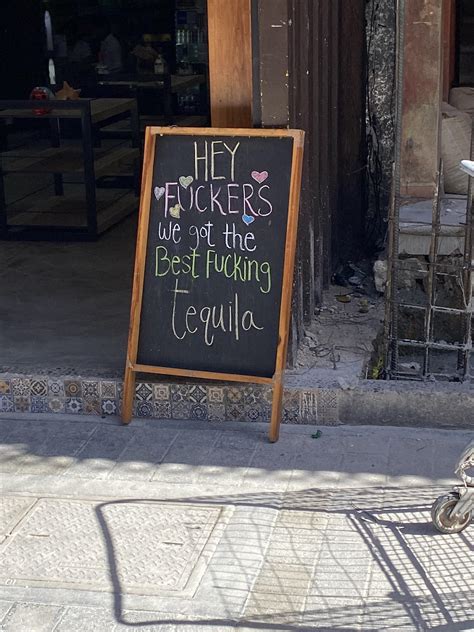 HEY
FUCKERS
We got the
Best Fucking
tequila